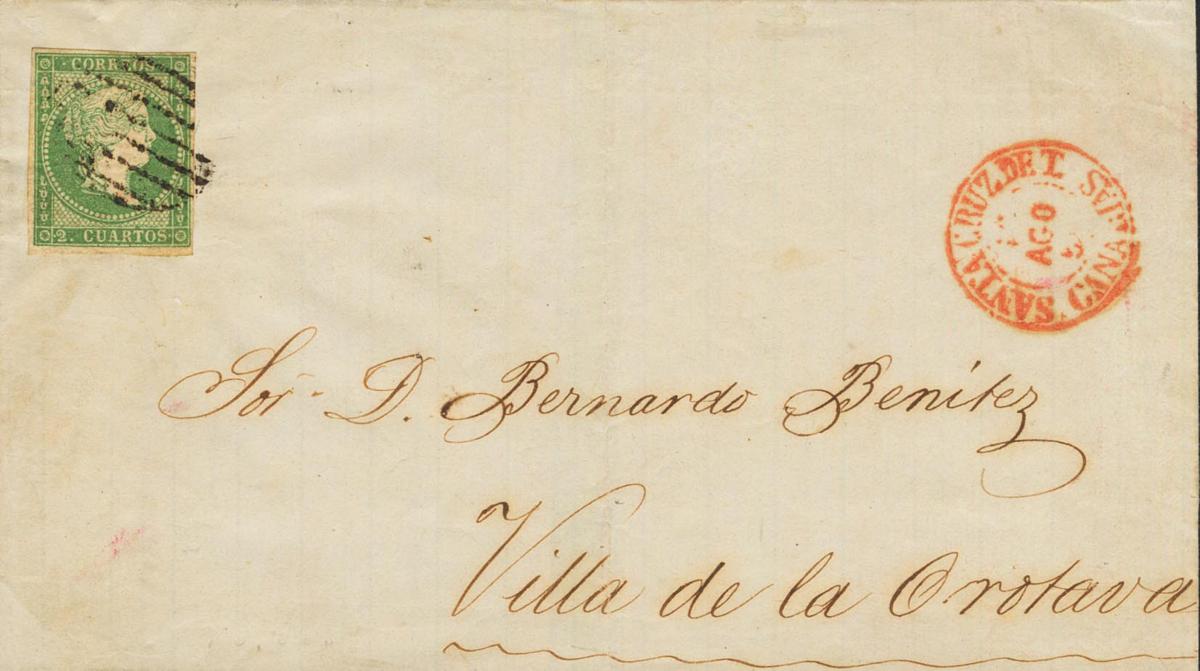 CORREOS
2. CUARTOS
SANTA CRUZ DE T.
AGO
Sor D. Bernardo Benítez
Villa de la Orotava